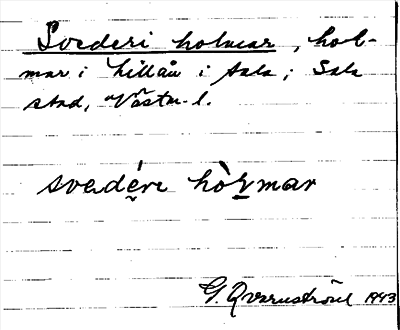 Svederi holmar, hol-
mar i Lillån i Sala; Sala
stad, Västm. l.
svedére hòlmar
G. Qvarnström 1943